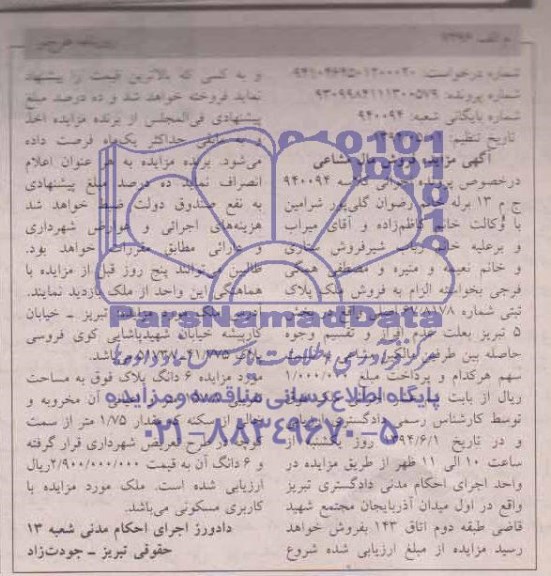 م الف ۷۳۹۶
شماره درخواست: ۹۴۱۰۴۶۴۵۰۱۳۰۰۰۲۰
شماره پرونده: ۹۳۰۹۹۸۴۱۱۱۳۰۰۵۷۹
شماره بایگانی شعبه: ۹۴۰۰۹۴
تاریخ تنظیم:
آگهی مزایده فروش مال مشاعی
درخصوص پرونده اجرائی کلاسه ۹۴۰۰۹۴
ج م ۱۳ برله خانم رضوان گلی‌پور شرامین
با وکالت خانم کاظم‌زاده و آقای میراب
و برعلیه خانم رباب شیرفروش ستاری
و خانم نعیمه و منیره و مصطفی همگی
فرجی بخواسته الزام به فروش ملک پلاک
ثبتی شماره اصلی واقع در بخش
۵ تبریز بعلت عدم افراز و تقسیم وجوه
حاصله بین طرفین
سهم هرکدام و پرداخت مبلغ ۱/۰۰۰/۰۰۰
ریال از بابت
توسط کارشناس رسمی دادگستری ارزیابی
و در تاریخ ۱۳۹۴/۶/۱ روز یکشنبه از
ساعت ۱۰ الی ۱۱ ظهر از طریق مزایده در
واحد اجرای احکام مدنی دادگستری تبریز
واقع در اول میدان آذربایجان مجتمع شهید
قاضی طبقه دوم اتاق ۱۴۳ بفروش خواهد
رسید مزایده از مبلغ ارزیابی شده شروع
و به کسی که بالاترین قیمت را پیشنهاد
نماید فروخته خواهد شد و ده درصد مبلغ
پیشنهادی فی‌المجلس از برنده مزایده اخذ
و به مابقی حداکثر یک‌ماه فرصت داده
می‌شود. برنده مزایده به هر عنوان اعلام
انصراف نماید ده درصد مبلغ پیشنهادی
به نفع صندوق دولت ضبط خواهد شد
هزینه‌های اجرائی و عوارض شهرداری
و دارائی مطابق مقررات خواهد بود.
طالبین می‌توانند پنج روز قبل از مزایده با
هماهنگی این واحد از ملک بازدید نمایند.
آدرس ملک مورد مزایده: تبریز ـ خیابان
کارپیشه خیابان شهیدپاشایی کوی فروسی
پلاک می‌باشد.
مورد مزایده ۶ دانگ پلاک فوق به مساحت
آن مخروبه و
خالی از سکنه که مقدار ۱/۷۵ متر از سمت
کوچه در طرح تعریض شهرداری قرار گرفته
و ۶ دانگ آن به قیمت ۲/۹۰۰/۰۰۰/۰۰۰ریال
ارزیابی شده است. ملک مورد مزایده با
کاربری مسکونی می‌باشد.
دادورز اجرای احکام مدنی شعبه ۱۳
حقوقی تبریز ـ جودت‌زاد
ParsNamadData
پایگاه اطلاع رسانی مناقصه و مزایده
۰۲۱-۸۸۳۴۹۶۷۰-۵